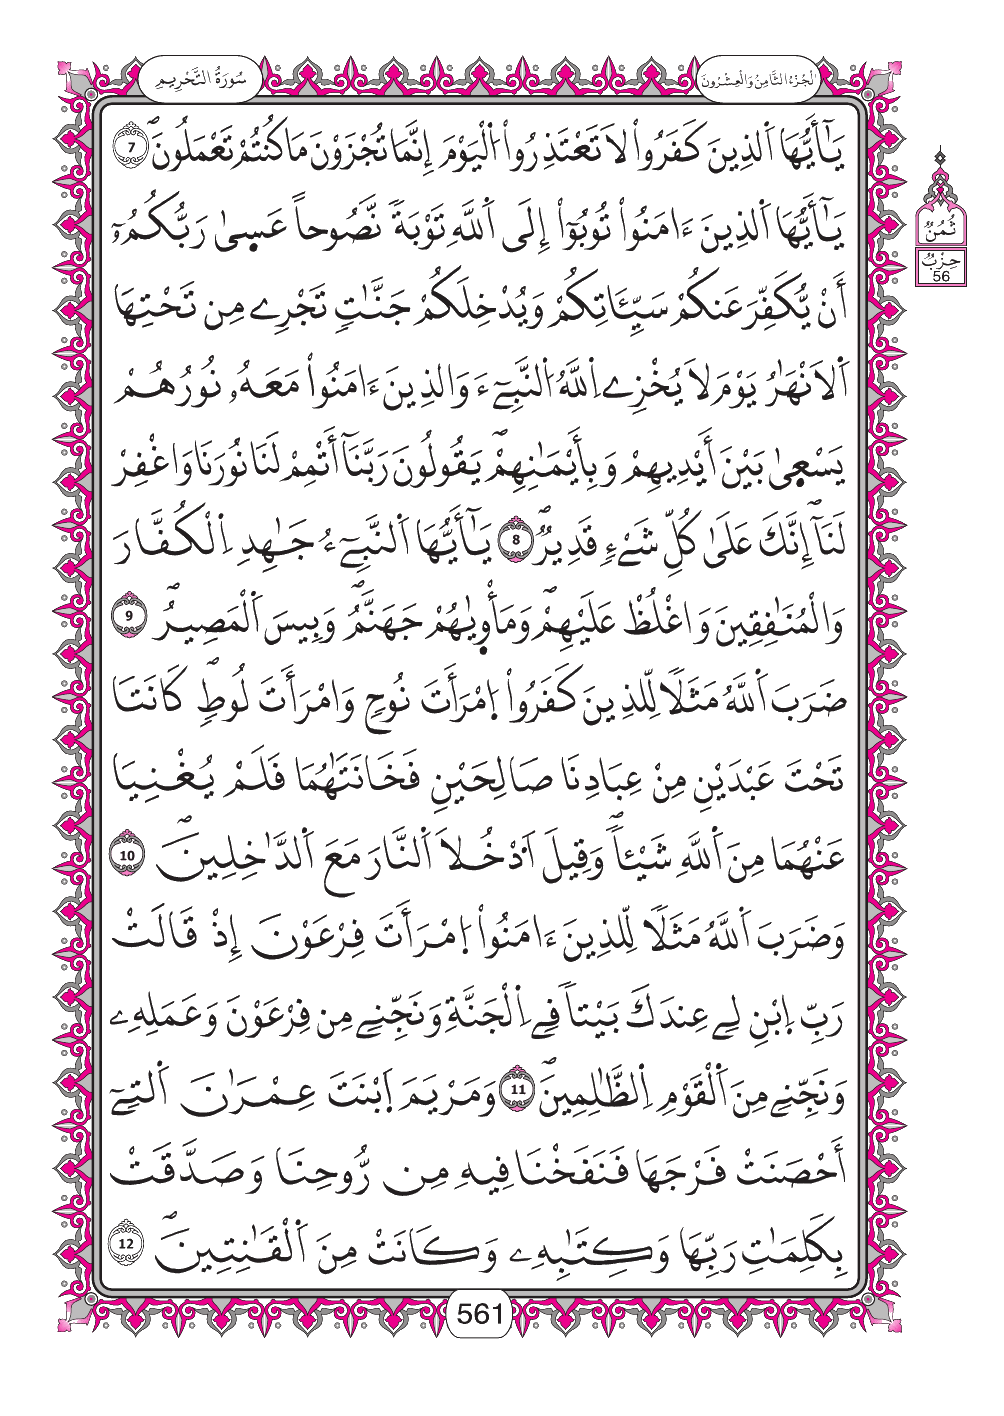 سُورَةُ التَّحْرِيمِ
الْجُزْءُ الثَّامِنُ وَالْعِشْرُونَ
يَٰٓأَيُّهَا اَ۬لذِينَ كَفَرُواْ لَا تَعْتَذِرُواْ اُ۬لْيَوْمَۖ إِنَّمَا تُجْزَوْنَ مَا كُنتُمْ تَعْمَلُونَۖ 7
يَٰٓأَيُّهَا اَ۬لذِينَ ءَامَنُواْ تُوبُوٓاْ إِلَى اَ۬للَّهِ تَوْبَةٗ نَّصُوحاً عَس۪يٰ رَبُّكُمُۥٓ
أَنْ يُّكَفِّرَ عَنكُمْ سَيِّـَٔاتِكُمْ وَيُدْخِلَكُمْ جَنَّٰتٖ تَجْرِے مِن تَحْتِهَا
اَ۬لَانْهَٰرُ يَوْمَ لَا يُخْزِے اِ۬للَّهُ اُ۬لنَّبِيٓءَ وَالذِينَ ءَامَنُواْ مَعَهُۥ نُورُهُمْ
يَسْع۪يٰ بَيْنَ أَيْدِيهِمْ وَبِأَيْمَٰنِهِمْۖ يَقُولُونَ رَبَّنَآ أَتْمِمْ لَنَا نُورَنَا وَاغْفِرْ
لَنَآۖ إِنَّكَ عَلَىٰ كُلِّ شَےْءٖ قَدِيرٞۖ 8 يَٰٓأَيُّهَا اَ۬لنَّبِيٓءُ جَٰهِدِ اِ۬لْكُفَّارَ
وَالْمُنَٰفِقِينَ وَاغْلُظْ عَلَيْهِمْۖ وَمَأْو۪يٰهُمْ جَهَنَّمُۖ وَبِيسَ اَ۬لْمَصِيرُۖ 9
ضَرَبَ اَ۬للَّهُ مَثَلٗا لِّلذِينَ كَفَرُواْ اُ۪مْرَأَتَ نُوحٖ وَامْرَأَتَ لُوطٖۖ كَانَتَا
تَحْتَ عَبْدَيْنِ مِنْ عِبَادِنَا صَٰلِحَيْنِ فَخَانَتَٰهُمَا فَلَمْ يُغْنِيَا
عَنْهُمَا مِنَ اَ۬للَّهِ شَيْـٔاٗۖ وَقِيلَ اَ۟دْخُلَا اَ۬لنَّارَ مَعَ اَ۬لدَّٰخِلِينَۖ 10
وَضَرَبَ اَ۬للَّهُ مَثَلٗا لِّلذِينَ ءَامَنُواْ اُ۪مْرَأَتَ فِرْعَوْنَ إِذْ قَالَتْ
رَبِّ اِ۪بْنِ لِے عِندَكَ بَيْتاٗ فِے اِ۬لْجَنَّةِ وَنَجِّنِے مِن فِرْعَوْنَ وَعَمَلِهِۦ
وَنَجِّنِے مِنَ اَ۬لْقَوْمِ اِ۬لظَّٰلِمِينَۖ 11 وَمَرْيَمَ اَ۪بْنَتَ عِمْرَٰنَ اَ۬لتِےٓ
أَحْصَنَتْ فَرْجَهَا فَنَفَخْنَا فِيهِ مِن رُّوحِنَا وَصَدَّقَتْ
بِكَلِمَٰتِ رَبِّهَا وَكِتَٰبِهِۦ وَكَانَتْ مِنَ اَ۬لْقَٰنِتِينَۖ 12
ثُمُنُ
حِزْبٌ
56
561